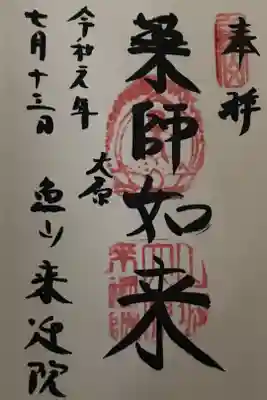 奉拝
薬師如来
大原
魚山来迎院
令和元年
七月十三日